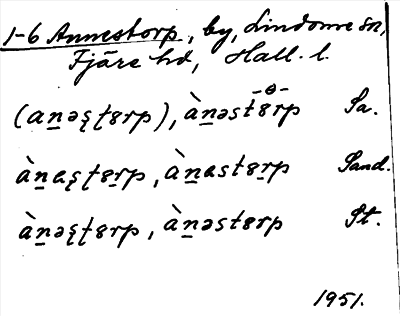 1-6 Annestorp, by, Lindome sn,
Fjäre hd, Hall. l.
(an̲əʂʈɵrp), àn̲əstɵrp Sa.
àn̲aʂʈɵr̲p, àn̲astɵr̲p Sand.
àn̲əʂʈɵrp, àn̲əstɵrp St.
1951.